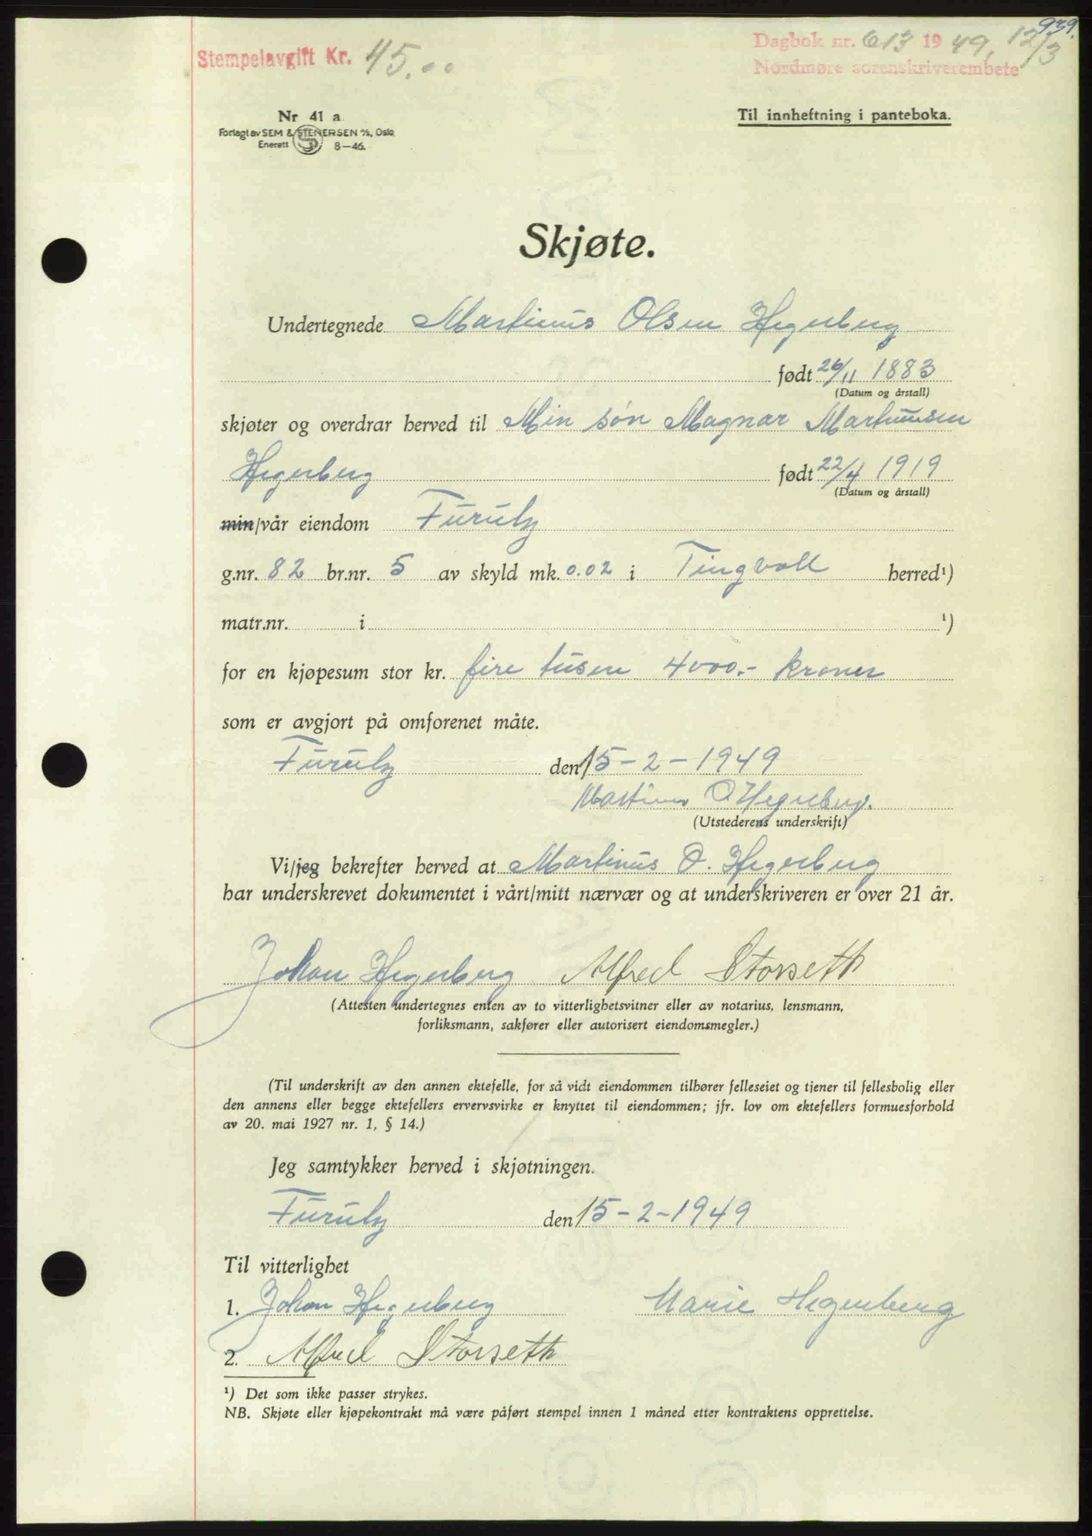 939.
Stempelavgift Kr. 45.00
Dagbok nr. 613 1949, 12/3
Nordmøre sorenskriverembete
Nr 41 a
Forlagt av SEM & STENERSEN A/S, Oslo
Enerett 8-46.
Til innheftning i panteboka.
Skjøte.
Undertegnede Martinus Olsen Hegerberg
født 26/11 1883
(Datum og årstall)
skjøter og overdrar herved til Min søn Magnar Martinusen
Hegerberg født 22/4 1919
(Datum og årstall)
min/vår eiendom Furuly
g.nr. 82 br.nr. 5 av skyld mk. 0.02 i Tingvoll herred¹)
matr.nr. i ¹)
for en kjøpesum stor kr. fire tusen 4000.- kroner
som er avgjort på omforenet måte.
Furuly den 15-2-1949
Martinus O Hegerberg.
(Utstederens underskrift)
Vi/jeg bekrefter herved at Martinus O. Hegerberg
har underskrevet dokumentet i vårt/mitt nærvær og at underskriveren er over 21 år.
Johan Hegerberg Alfred Storseth
(Attesten undertegnes enten av to vitterlighetsvitner eller av notarius, lensmann,
forliksmann, sakfører eller autorisert eiendomsmegler.)
(Til underskrift av den annen ektefelle, for så vidt eiendommen tilhører felleseiet og tjener til fellesbolig eller
den annens eller begge ektefellers ervervsvirke er knyttet til eiendommen; jfr. lov om ektefellers formuesforhold
av 20. mai 1927 nr. 1, § 14.)
Jeg samtykker herved i skjøtningen.
Furuly den 15-2-1949
Til vitterlighet
1. Johan Hegerberg Marie Hegerberg
2. Alfred Storseth
¹) Det som ikke passer strykes.
NB. Skjøte eller kjøpekontrakt må være påført stempel innen 1 måned etter kontraktens opprettelse.